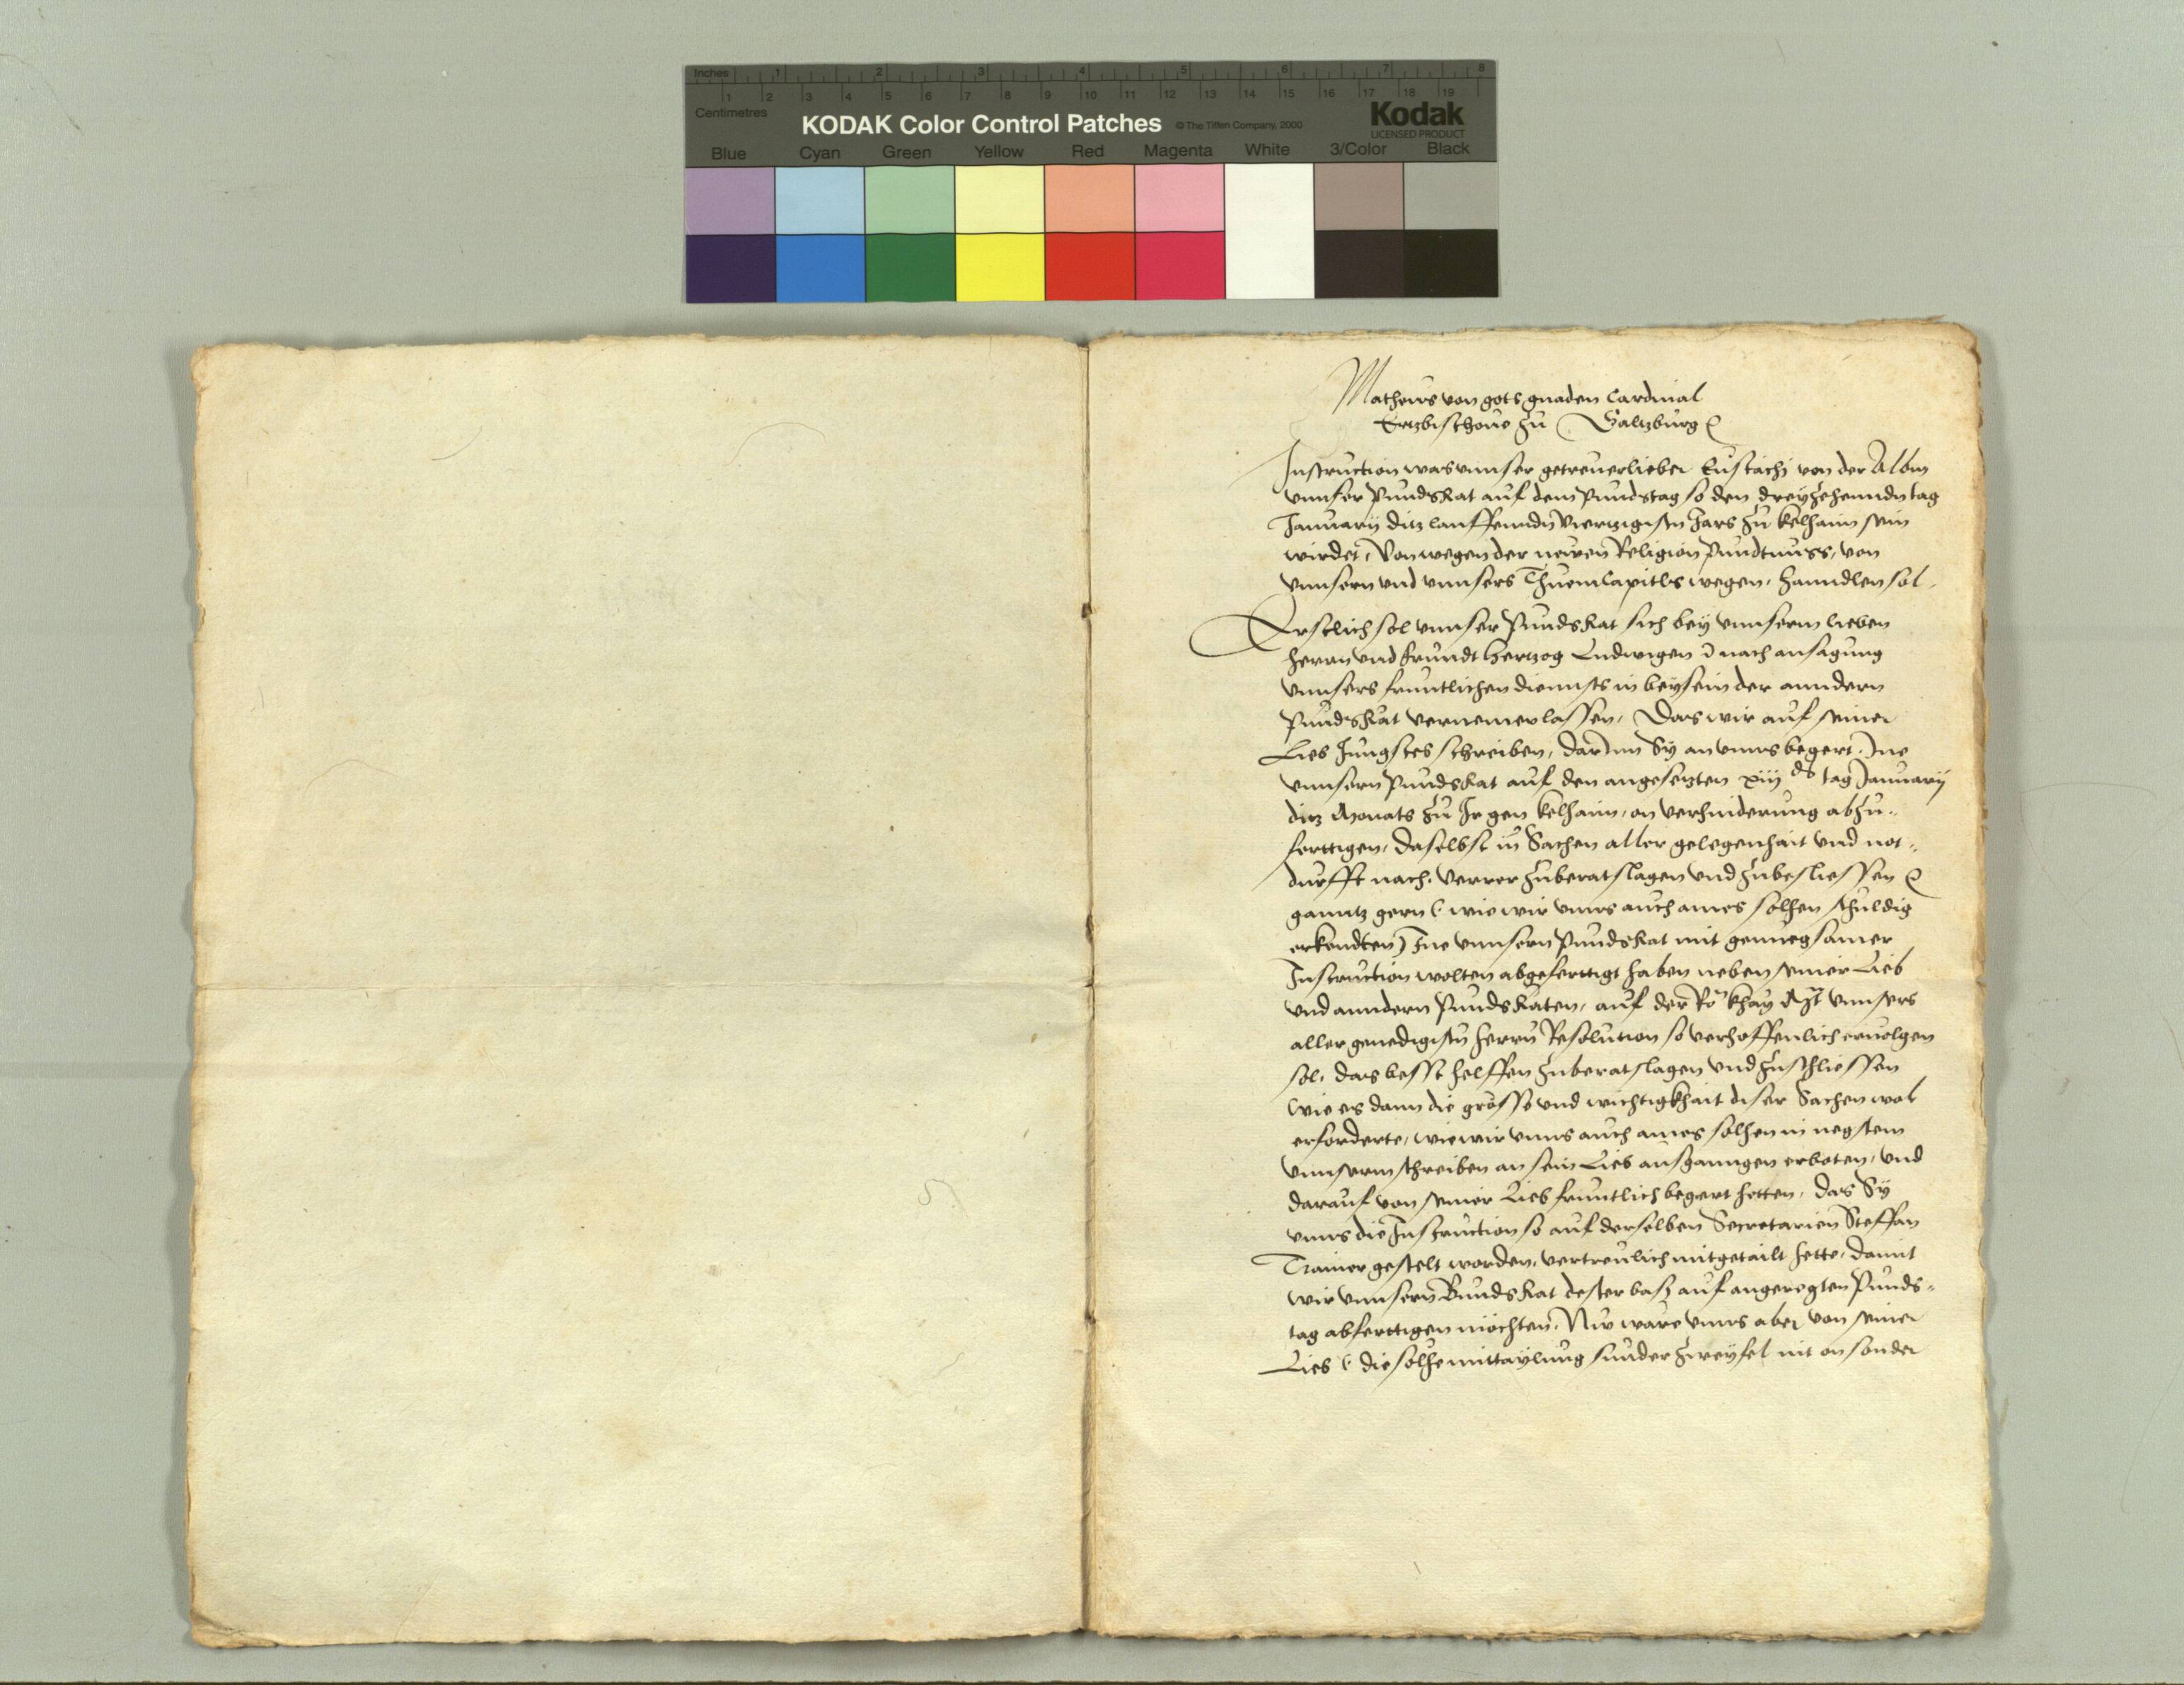 Inches 1 2 3 4 5 6 7 8
Centimetres 1 2 3 4 5 6 7 8 9 10 11 12 13 14 15 16 17 18 19
KODAK Color Control Patches © The Tiffen Company, 2000 Kodak
LICENSED PRODUCT
Blue Cyan Green Yellow Red Magenta White 3/Color Black
Matheus von gots gnaden Cardinal
Ertzbischoue zu Saltzburg
Instruction was vnnser getreuer lieber Eustachi von der Albm
vnnser PundsRat auf dem Pundstag so den dreyzehenndn tag
January ditz lauffenndn viertzigistn Jars zu Kelhaim sein
wirdet, Von wegen der newen Religion Pundtnuss, von
vnnsern vnd vnnsers ThuemCapitls wegen, hanndlen sol.
Erstlich sol vnnser PundsRat sich bey vnnserm lieben
herrn vnd freundt Hertzog Ludwigen nach ansagung
vnnsers fruntlichen diennsts in beysein der anndern
PundsRät vernemen lassen, Das wir auf seiner
Lieb Jungstes schreiben, darInn Sy an vnns begert, Ine
vnnsern PundsRat auf den angesetzten xiij tag January
ditz Monats zu Ir gen Kelhaim, on verhinderung abzu-
ferttigen, daselbst in Sachen aller gelegenhait vnd not-
durfft nach, verrer zuberatslagen vnd zubesliessen
ganntz gern (wie wir vnns auch aines solhen schuldig
erkendten) Ine vnnsern PundsRat mit genuegsamer
Instruction wolten abgeferttigt haben neben seiner Lieb
vnd anndern PundsRäten, auf der Rö Khay Mt vnnsers
aller genedigistn herrn Resolution so verhoffenlich eruolgen
sol, das besst helffen zuberatslagen vnd zuschliessen
Wie es dann die grösse vnd wichtigkhait diser Sachen wol
erforderte, wie wir vnns auch aines solhen in negstem
vnnserm schreiben an sein Lieb ausganngen erboten, vnd
darauf von seiner Lieb fruntlich begert hetten, das Sy
vnns die Instruction so auf derselben Secretarien Steffan
Trainer gestelt worden, vertreulich mitgetailt hette, damit
wir vnnsern BundsRat dester bas auf angeregten Punds-
tag abferttigen möchten, Nw ware vnns aber von seiner
Lieb (die solhe mittaylung sunder zweyfel nit on sonder